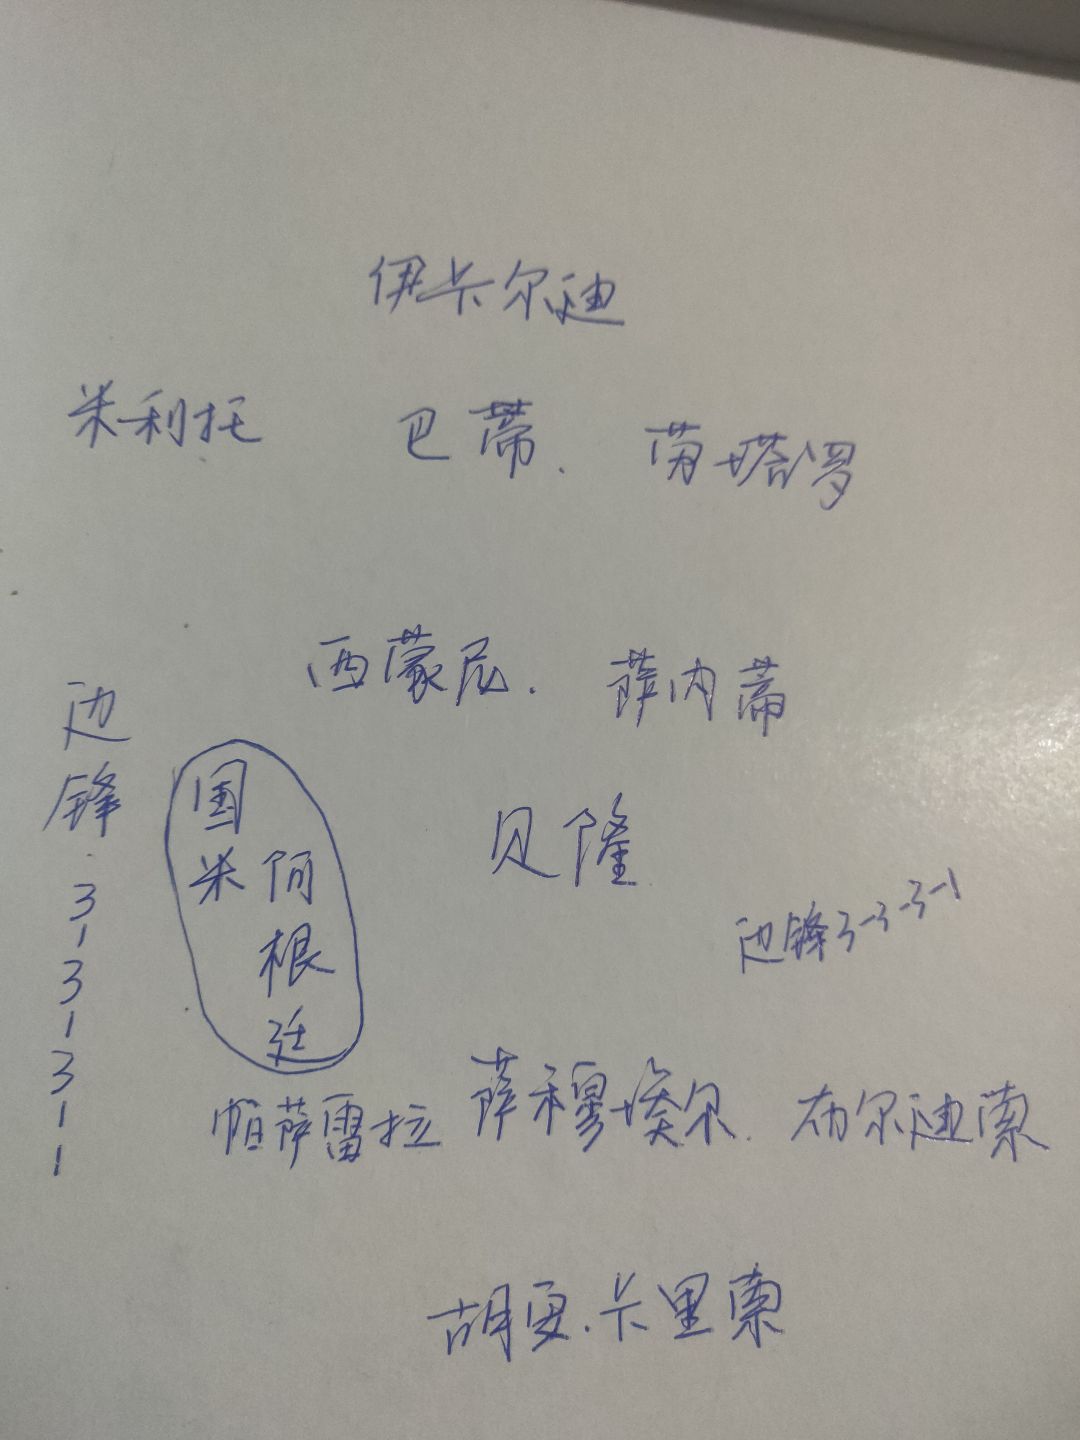 伊卡尔迪
米利托 巴蒂. 劳塔罗
西蒙尼. 萨内蒂
边锋.3-3-3-1
国米
阿根廷
贝隆
边锋3-3-3-1
帕萨雷拉 萨穆埃尔. 布尔迪索
胡安.卡里索